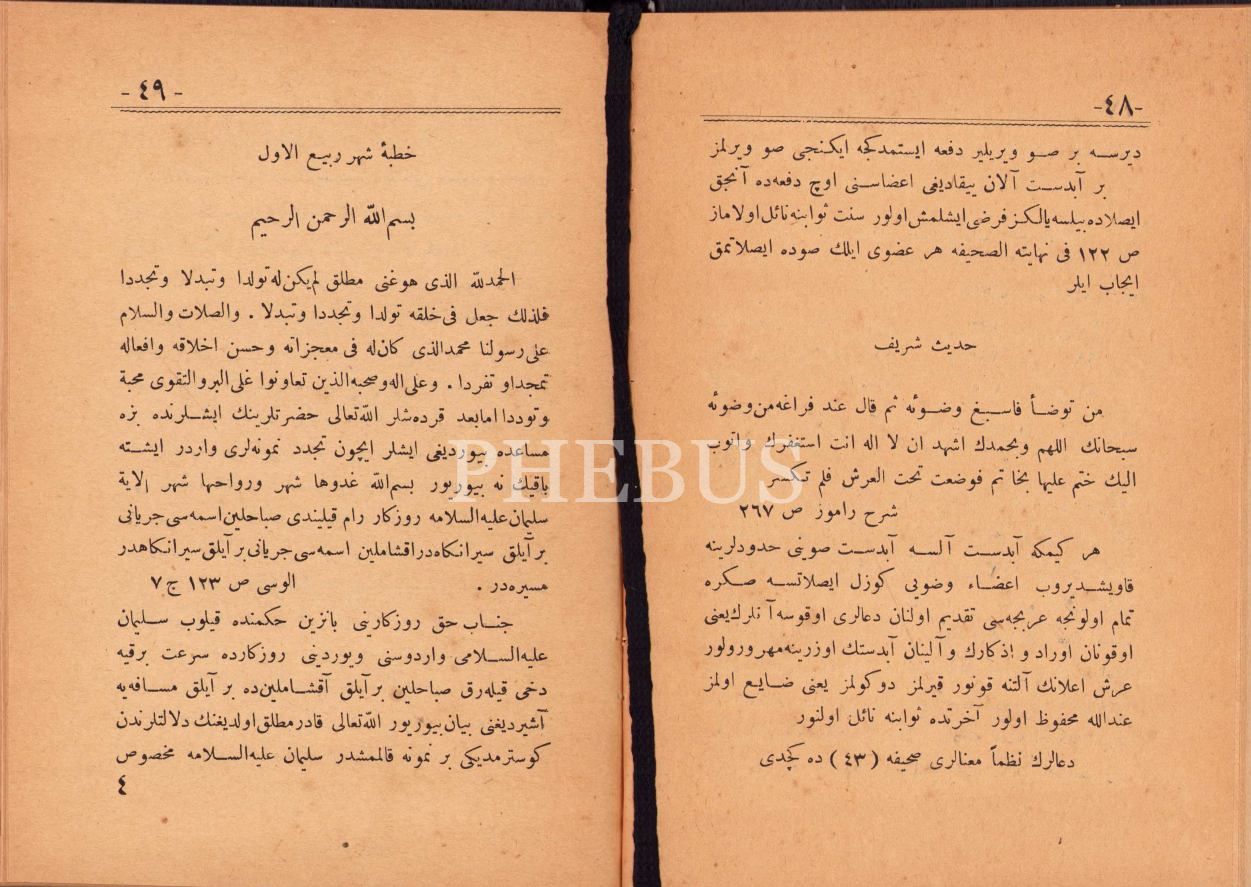 -٤٨-
ديرسه بر صو ويريلير دفعه ايستمدكجه ايكنجى صو ويرلمز
بر آبدست آلان ييقاديغى اعضاسنى اوچ دفعه‌ده آنجق
ايصلاده‌بيلسه يالكز فرضى ايشلمش اولور سنت ثوابنه نائل اولاماز
ص ١٢٢ فى نهايته الصحيفه هر عضوى ايلك صوده ايصلاتمق
ايجاب ايلر
حديث شريف
من توضأ فاسبغ وضوئه ثم قال عند فراغه من وضوئه
سبحانك اللهم وبحمدك اشهد ان لا اله انت استغفرك واتوب
اليك ختم عليها بخاتم فوضعت تحت العرش فلم تكسر
شرح راموز ص ٢٦٧
هر كيمكه آبدست آلسه آبدست صوينى حدودلرينه
قاويشديروب اعضاء وضويى كوزل ايصلاتسه صكره
تمام اولونجه عربجه‌سى تقديم اولنان دعالرى اوقوسه آنلرك يعنى
اوقونان اوراد و اذكارك و آلينان آبدستك اوزرينه مهر ورولور
عرش اعلانك آلتنه قونور قيرلمز دوكولمز يعنى ضايع اولمز
عندالله محفوظ اولور آخرتده ثوابنه نائل اولنور
دعالرك نظماً معنالرى صحيفه ( ٤٣ ) ده كچدى
- ٤٩ -
خطبۀ شهر ربيع الاول
بسم الله الرحمن الرحيم
الحمدلله الذى هو غنى مطلق لم يكن له تولدا وتبدلا وتجددا
فلذلك جعل فى خلقه تولدا وتجددا وتبدلا . والصلات والسلام
على رسولنا محمدالذى كان له فى معجزاته وحسن اخلاقه وافعاله
تمجداو تفردا . وعلى اله وصحبه الذين تعاونوا على البر والتقوى محبة
وتوددا امابعد قرده‌شلر الله تعالى حضرتلرينك ايشلرنده بزه
مساعده بيورديغى ايشلر ايچون تجدد نمونه‌لرى واردر ايشته
باقيك نه بيوريور بسم الله غدوها شهر ورواحها شهر الاية
سليمان عليه السلامه روزكار رام قيلیندى صباحلين اسمه‌سى جريانى
بر آيلق سيرانكاه‌در اقشاملين اسمه‌سى جريانى بر آيلق سيرانكاهدر
مسيره‌در . الوسى ص ١٢٣ ج ٧
جناب حق روزكارينى بانزين حكمنده قيلوب سليمان
عليه السلامى واردوسنى وبوردينى روزكارده سرعت برقيه
دخى قيله‌رق صباحلين بر آيلق آقشاملين‌ده بر آيلق مسافه‌يه
آشيرديغنى بيان بيوريور الله تعالى قادر مطلق اولديغنك دلالتلرندن
كوسترمديكى بر نمونه قالممشدر سليمان عليه السلامه مخصوص
٤
PHEBUS